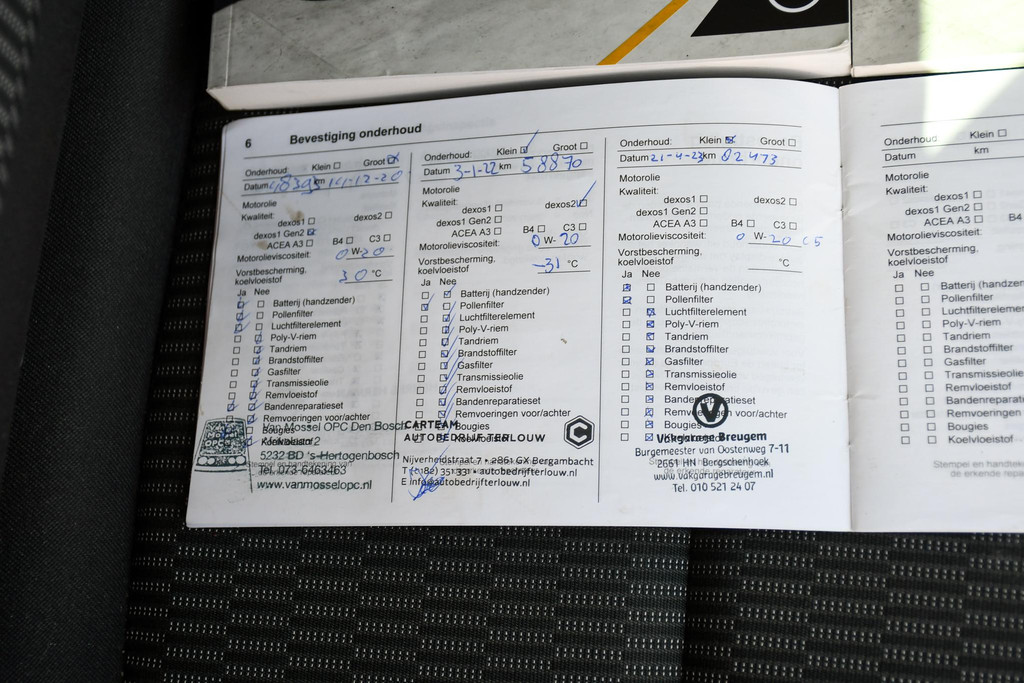 6 Bevestiging onderhoud
Onderhoud: Klein Groot
Datum km 14-12-20
Motorolie
Kwaliteit:
dexos1 dexos2
dexos1 Gen2
ACEA A3 B4 C3
Motorolieviscositeit: 0 W-20
Vorstbescherming,
koelvloeistof 30 °C
Ja Nee
Batterij (handzender)
Pollenfilter
Luchtfilterelement
Poly-V-riem
Tandriem
Brandstoffilter
Gasfilter
Transmissieolie
Remvloeistof
Bandenreparatieset
Remvoeringen voor/achter
Bougies
Van Mossel OPC Den Bosch
5232 BD 's-Hertogenbosch
Tel. 073-6463463
www.vanmosselopc.nl
Onderhoud: Klein Groot
Datum 3-1-22 km 58870
Motorolie
Kwaliteit:
dexos1 dexos2
dexos1 Gen2
ACEA A3 B4 C3
Motorolieviscositeit: 0 W-20
Vorstbescherming,
koelvloeistof -31 °C
Ja Nee
Batterij (handzender)
Pollenfilter
Luchtfilterelement
Poly-V-riem
Tandriem
Brandstoffilter
Gasfilter
Transmissieolie
Remvloeistof
Bandenreparatieset
Remvoeringen voor/achter
Bougies
CARTEAM
AUTOBEDRIJF TERLOUW
Nijverheidstraat 7 • 2861 GX Bergambacht
autobedrijfterlouw.nl
E info@autobedrijfterlouw.nl
Onderhoud: Klein Groot
Datum 21-4-23 km 82473
Motorolie
Kwaliteit:
dexos1 dexos2
dexos1 Gen2
ACEA A3 B4 C3
Motorolieviscositeit: 0 W-20 C5
Vorstbescherming,
koelvloeistof °C
Ja Nee
Batterij (handzender)
Pollenfilter
Luchtfilterelement
Poly-V-riem
Tandriem
Brandstoffilter
Gasfilter
Transmissieolie
Remvloeistof
Bandenreparatieset
Remvoeringen voor/achter
Bougies
Vakgarage Breugem
Burgemeester van Oostenweg 7-11
2661 HN Bergschenhoek
www.vakgaragebreugem.nl
Tel. 010 521 24 07
Onderhoud: Klein
Datum km
Motorolie
Kwaliteit:
dexos1
dexos1 Gen2
ACEA A3
Motorolieviscositeit:
Vorstbescherming,
koelvloeistof
Ja Nee
Batterij (handzender
Pollenfilter
Luchtfilterelement
Poly-V-riem
Tandriem
Brandstoffilter
Gasfilter
Transmissieolie
Remvloeistof
Bandenreparaties
Remvoeringen
Bougies
Koelvloeistof
Stempel en handteke
de erkende repa